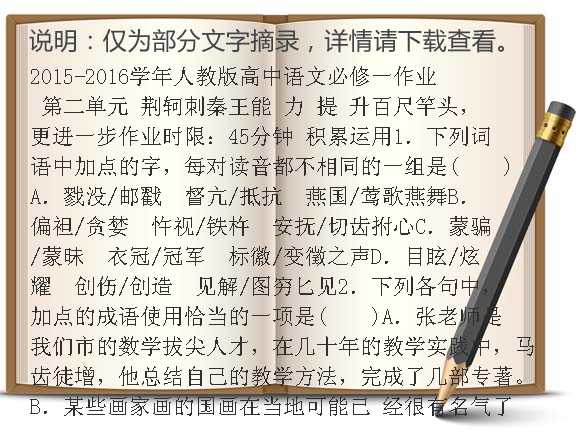 说明：仅为部分文字摘录，详情请下载查看。
2015-2016学年人教版高中语文必修一作业
第二单元 荆轲刺秦王能 力 提 升百尺竿头，
更进一步作业时限：45分钟 积累运用1．下列词
语中加点的字，每对读音都不相同的一组是(　　)
A．戮没/邮戳　督亢/抵抗　燕国/莺歌燕舞B．
偏袒/贪婪　忤视/铁杵　安抚/切齿拊心C．蒙骗
/蒙昧　衣冠/冠军　标徽/变徵之声D．目眩/炫
耀　创伤/创造　见解/图穷匕见2．下列各句中，
加点的成语使用恰当的一项是(　　)A．张老师是
我们市的数学拔尖人才，在几十年的教学实践中，马
齿徒增，他总结自己的教学方法，完成了几部专著。
B．某些画家画的国画在当地可能已 经很有名气了